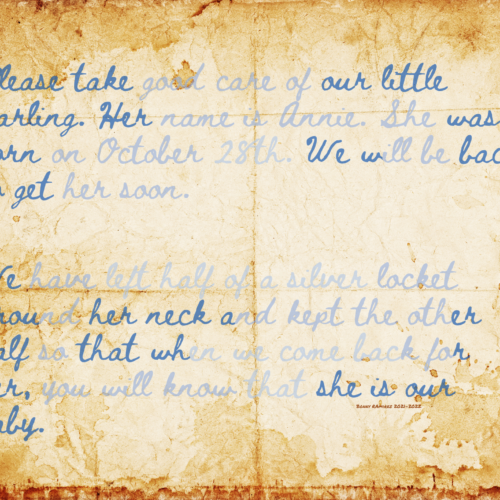 lease take good care of our little
arling. Her name is Annie. She was
orn on October 28th. We will be bac
o get her soon.
We have left half of a silver locket
round her neck and kept the other
alf so that when we come back for
er, you will know that she is our
aby.
2021-2022